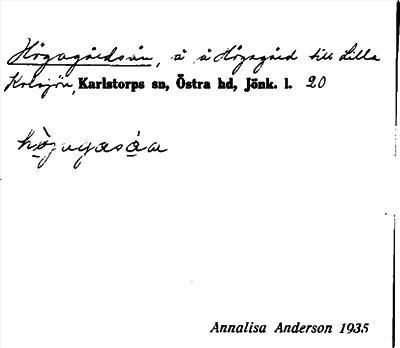 Högagårdsån, å å Högagård till Lilla
Kolsjön, Karlstorps sn, Östra hd, Jönk. l. 20
Annalisa Anderson 1935